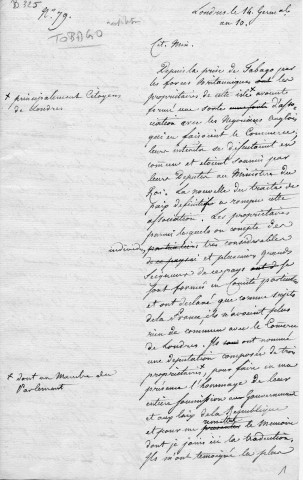 D 325
N.° 79.
institution
TOBAGO
Londres le 14 Germinal
an 10.
Cit. Min.
Depuis la prise de Tabago par
les forces Britanniques les
propriétaires de cette isle avaient
formé une sorte d'as-
sociation avec les Négocians Anglois
qui en faisoient le Commerce,
leurs interets se discutaient en
commun et étoient soumis par
leurs Députés au Ministre du
Roi. La nouvelle du traité de
paix definitif a rompu cette
association. Les propriétaires
parmi lesquels on compte des
individus très considérables
et plusieurs grands
Seigneurs de ce pays se
sont formés en Comité particulier
et ont déclaré que comme sujets
de la France ils n'avaient plus
rien de commun avec le Comerce
de Londres. Ils ont nommé
une députation composée de trois
propriétaires +, pour faire en ma
présence l'hommage de leur
entière soumission au Gouvernement
et aux loix de la République
et pour me remettre le Mémoire
dont je joins ici la traduction,
Ils m'ont témoigné la plus
+ principalement Citoyens
de Londres
+ dont un Membre du
Parlement
1